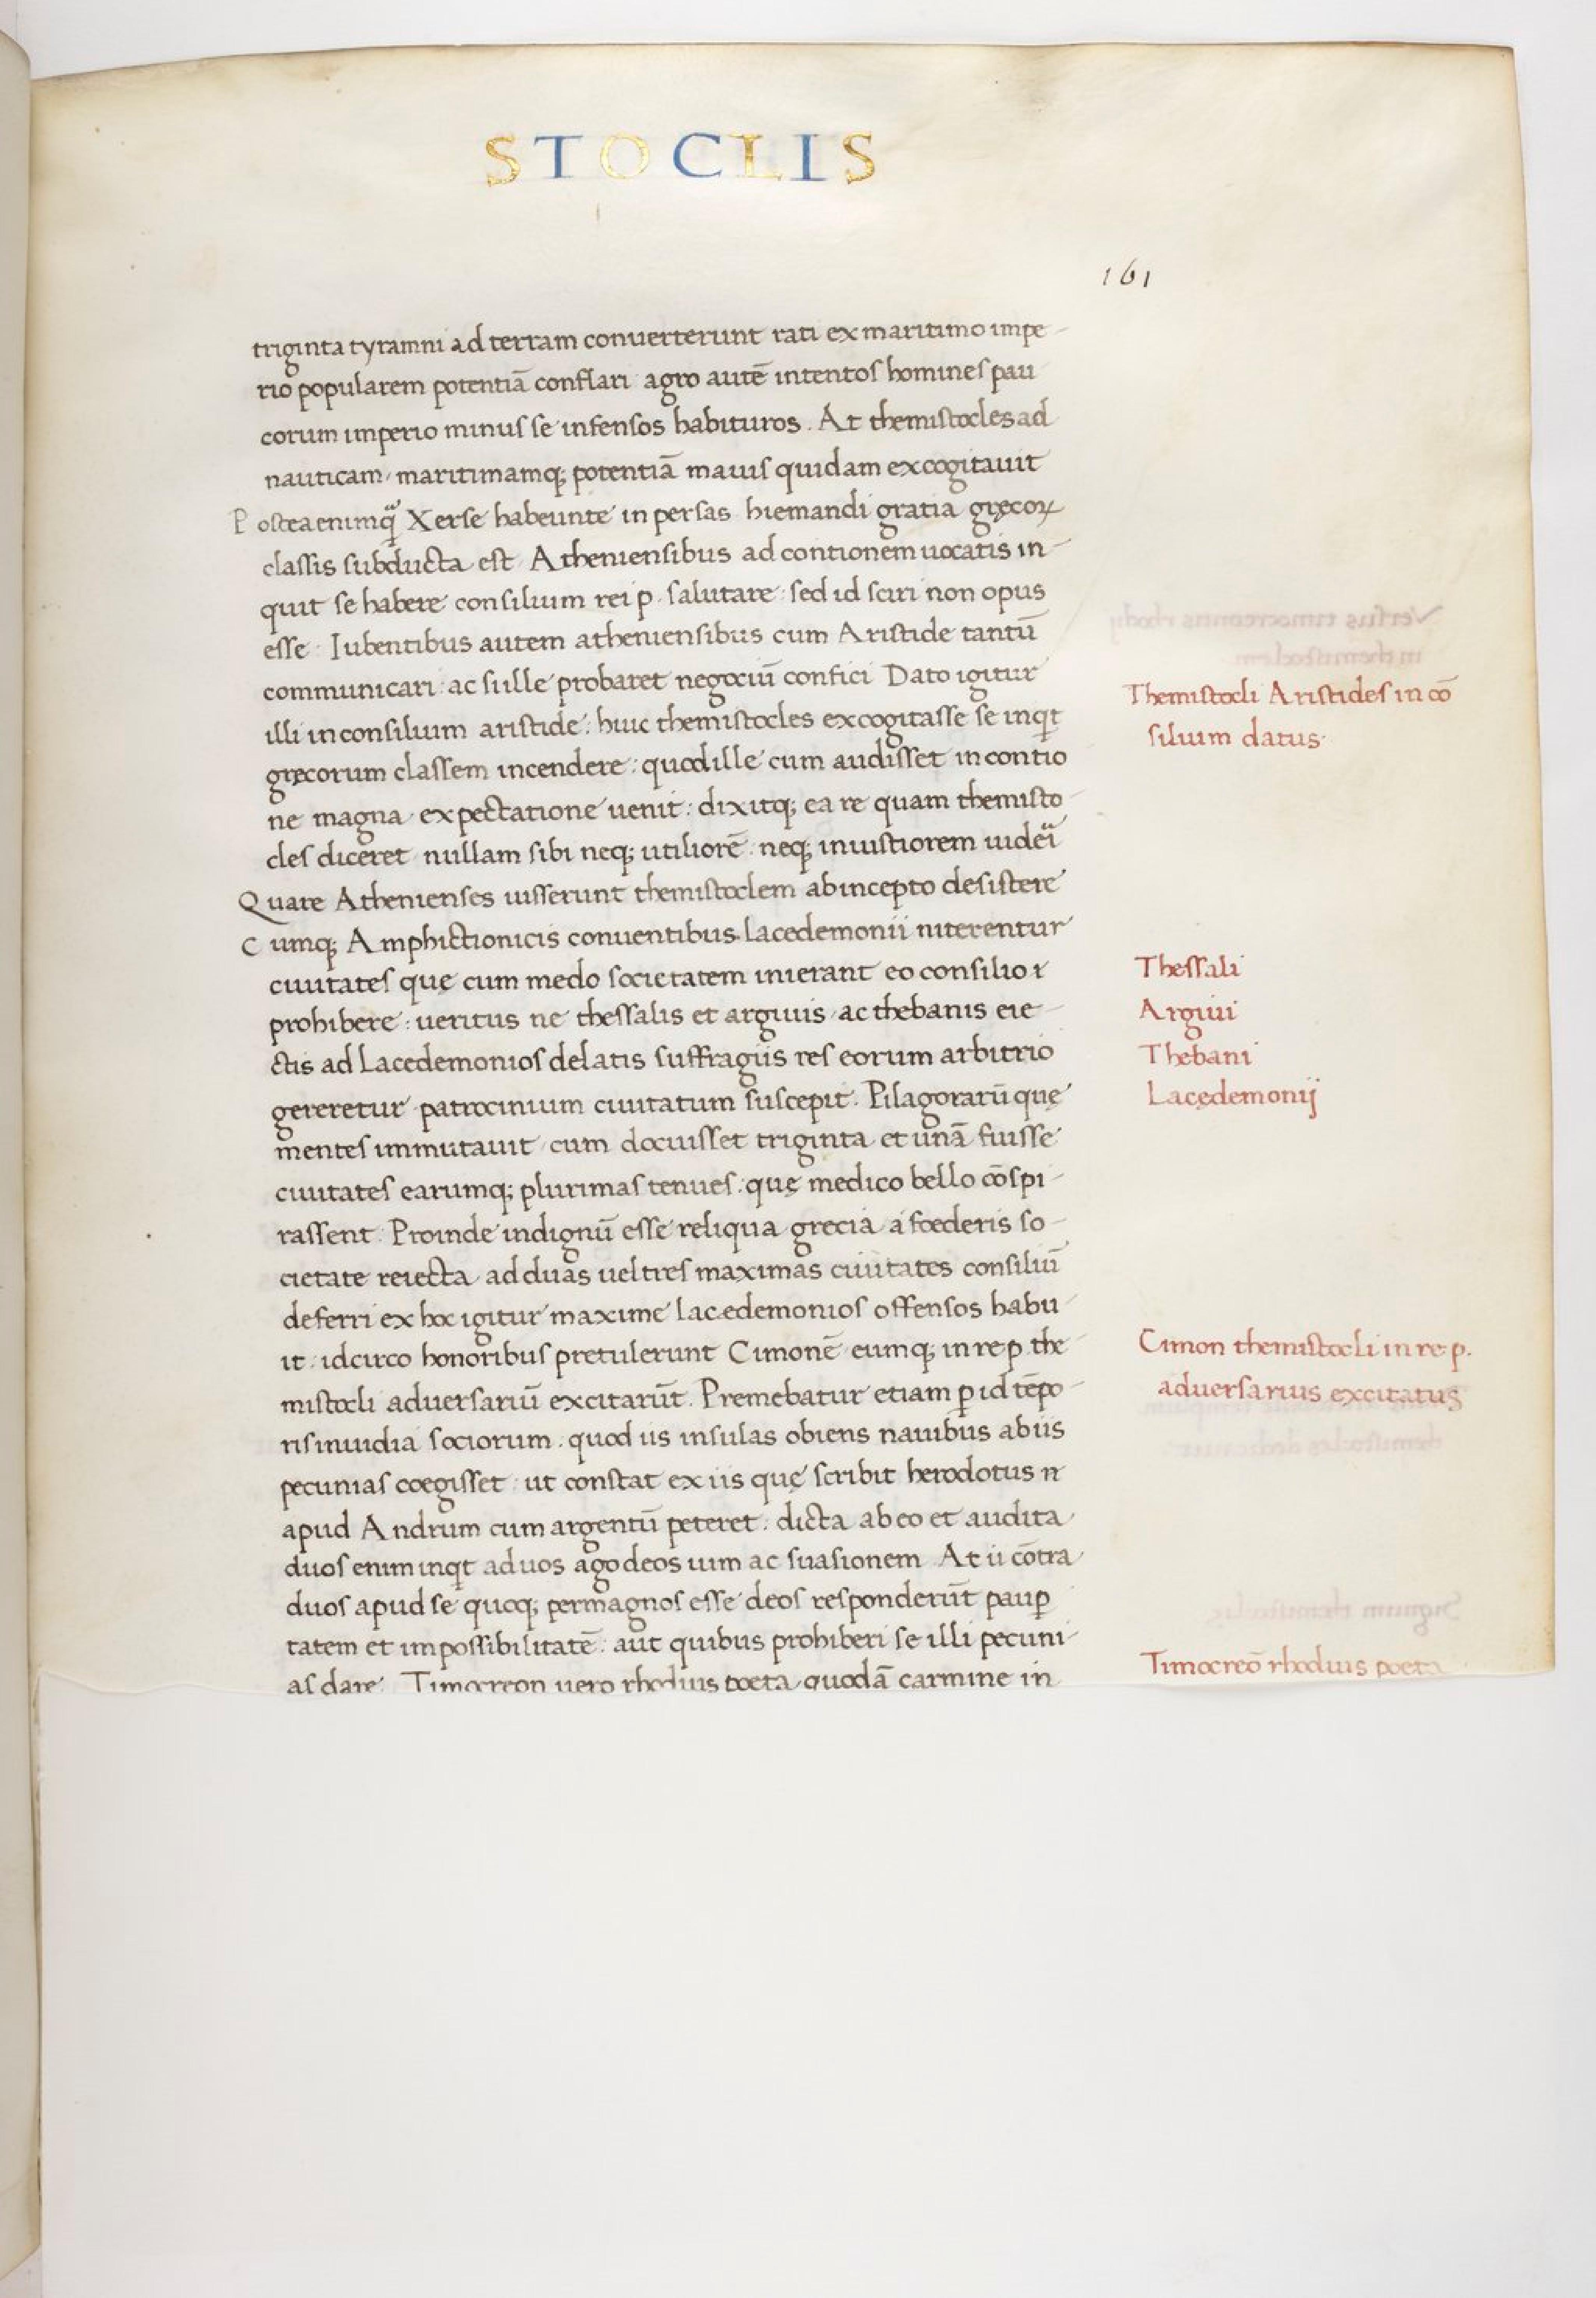 STOCLIS
161
triginta tyramni ad terram conuerterunt rati ex maritimo impe-
rio popularem potentiā conflari agro autē intentos homines pau
corum imperio minus se infensos habituros. At themistocles ad
nauticam, maritimamq; potentiā maius quidam excogitauit
Postea enim Xerse habeunte in persas hiemandi gratia gręcoꝝ
classis subducta est Atheniensibus ad contionem uocatis in-
quit se habere consilium rei p. salutare: sed id sciri non opus
esse: Iubentibus autem atheniensibus cum Aristide tantū
communicari: ac si ille probaret negociū confici Dato igitur
illi in consilium aristide: huic themistocles excogitasse se inqt
gręcorum classem incendere: quod ille cum audisset in contio
ne magna expectatione uenit: dixitq; ea re quam themisto-
cles diceret nullam sibi neq; utiliorē neq; iniustiorem uideri
Quare Athenienses iusserunt themistoclem ab incepto desistere
Cumq; Amphictionicis conuentibus lacedemonii niterentur
ciuitates quę cum medo societatem inierant eo consilio
prohibere: ueritus ne thessalis et argiuis, ac thebanis eie-
ctis ad Lacedemonios delatis suffragiis res eorum arbitrio
gereretur patrocinium ciuitatum suscepit. Pilagorarū quę
mentes immutauit, cum docuisset triginta et unā fuisse
ciuitates earumq; plurimas tenues: quę medico bello cōspi-
rassent. Proinde indignū esse reliqua grecia a foederis so-
cietate reiecta ad duas uel tres maximas ciuitates consiliū
deferri ex hoc igitur maxime lacedemonios offensos habu
it: idcirco honoribus pretulerunt Cimonē eumq; in re p. the
mistocli aduersariū excitarūt. Premebatur etiam ꝑ id tēpo-
ris inuidia sociorum: quod iis insulas obiens nauibus ab iis
pecunias coegisset: ut constat ex iis quę scribit herodotus
apud Andrum cum argentū peteret: dicta ab eo et audita
duos enim inqt ad uos ago deos uim ac suasionem At ii cōtra
duos apud se quoq; permagnos esse deos responderūt pauꝑ
tatem et impossibilitatē: aut quibus prohiberi se illi pecuni-
as dare. Timocreon uero rhodius poeta quodā carmine in
Themistocli Aristides in cō
silium datus.
Thessali
Argiui
Thebani
Lacędemonij
Cimon themistocli in re p.
aduersarius excitatus
Timocreō rhodius poeta